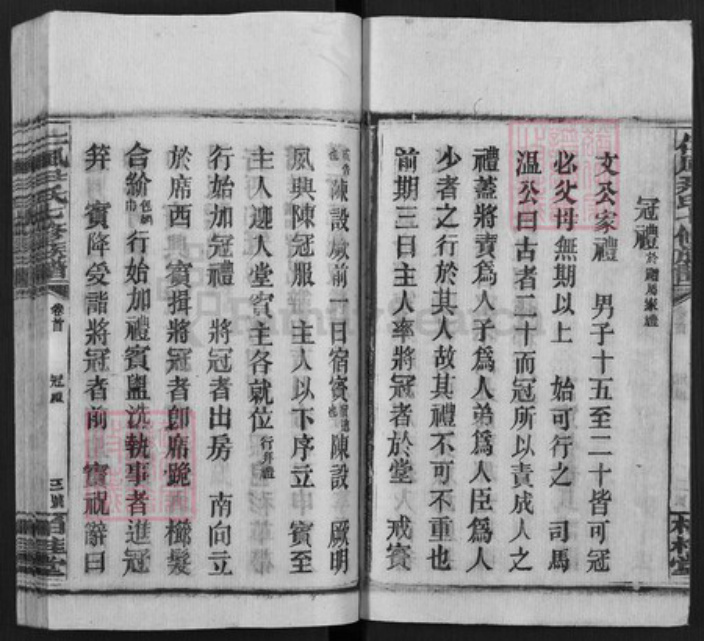 冠禮於廟為家禮
文公家禮　男子十五至二十皆可冠
必父母無期以上　始可行之　司馬
溫公曰古者二十而冠所以責成人之
禮蓋將責為人子為人弟為人臣為人
少者之行於其人故其禮不可不重也
前期三日主人率將冠者於堂　戒賓
陳設厥前一日宿賓　陳設　厥明
夙興陳冠服　主人以下序立　賓至
主人迎人堂賓主各就位行拜禮
行始加冠禮　將冠者出房　南向立
於席西　賓揖將冠者卽席跪　櫛髮
合紒包網巾行始加禮賓盥洗執事者進冠
笄　賓降受詣將冠者前　賓祝辭曰
尹氏七修族譜
卷首
冠禮
三號
桂堂